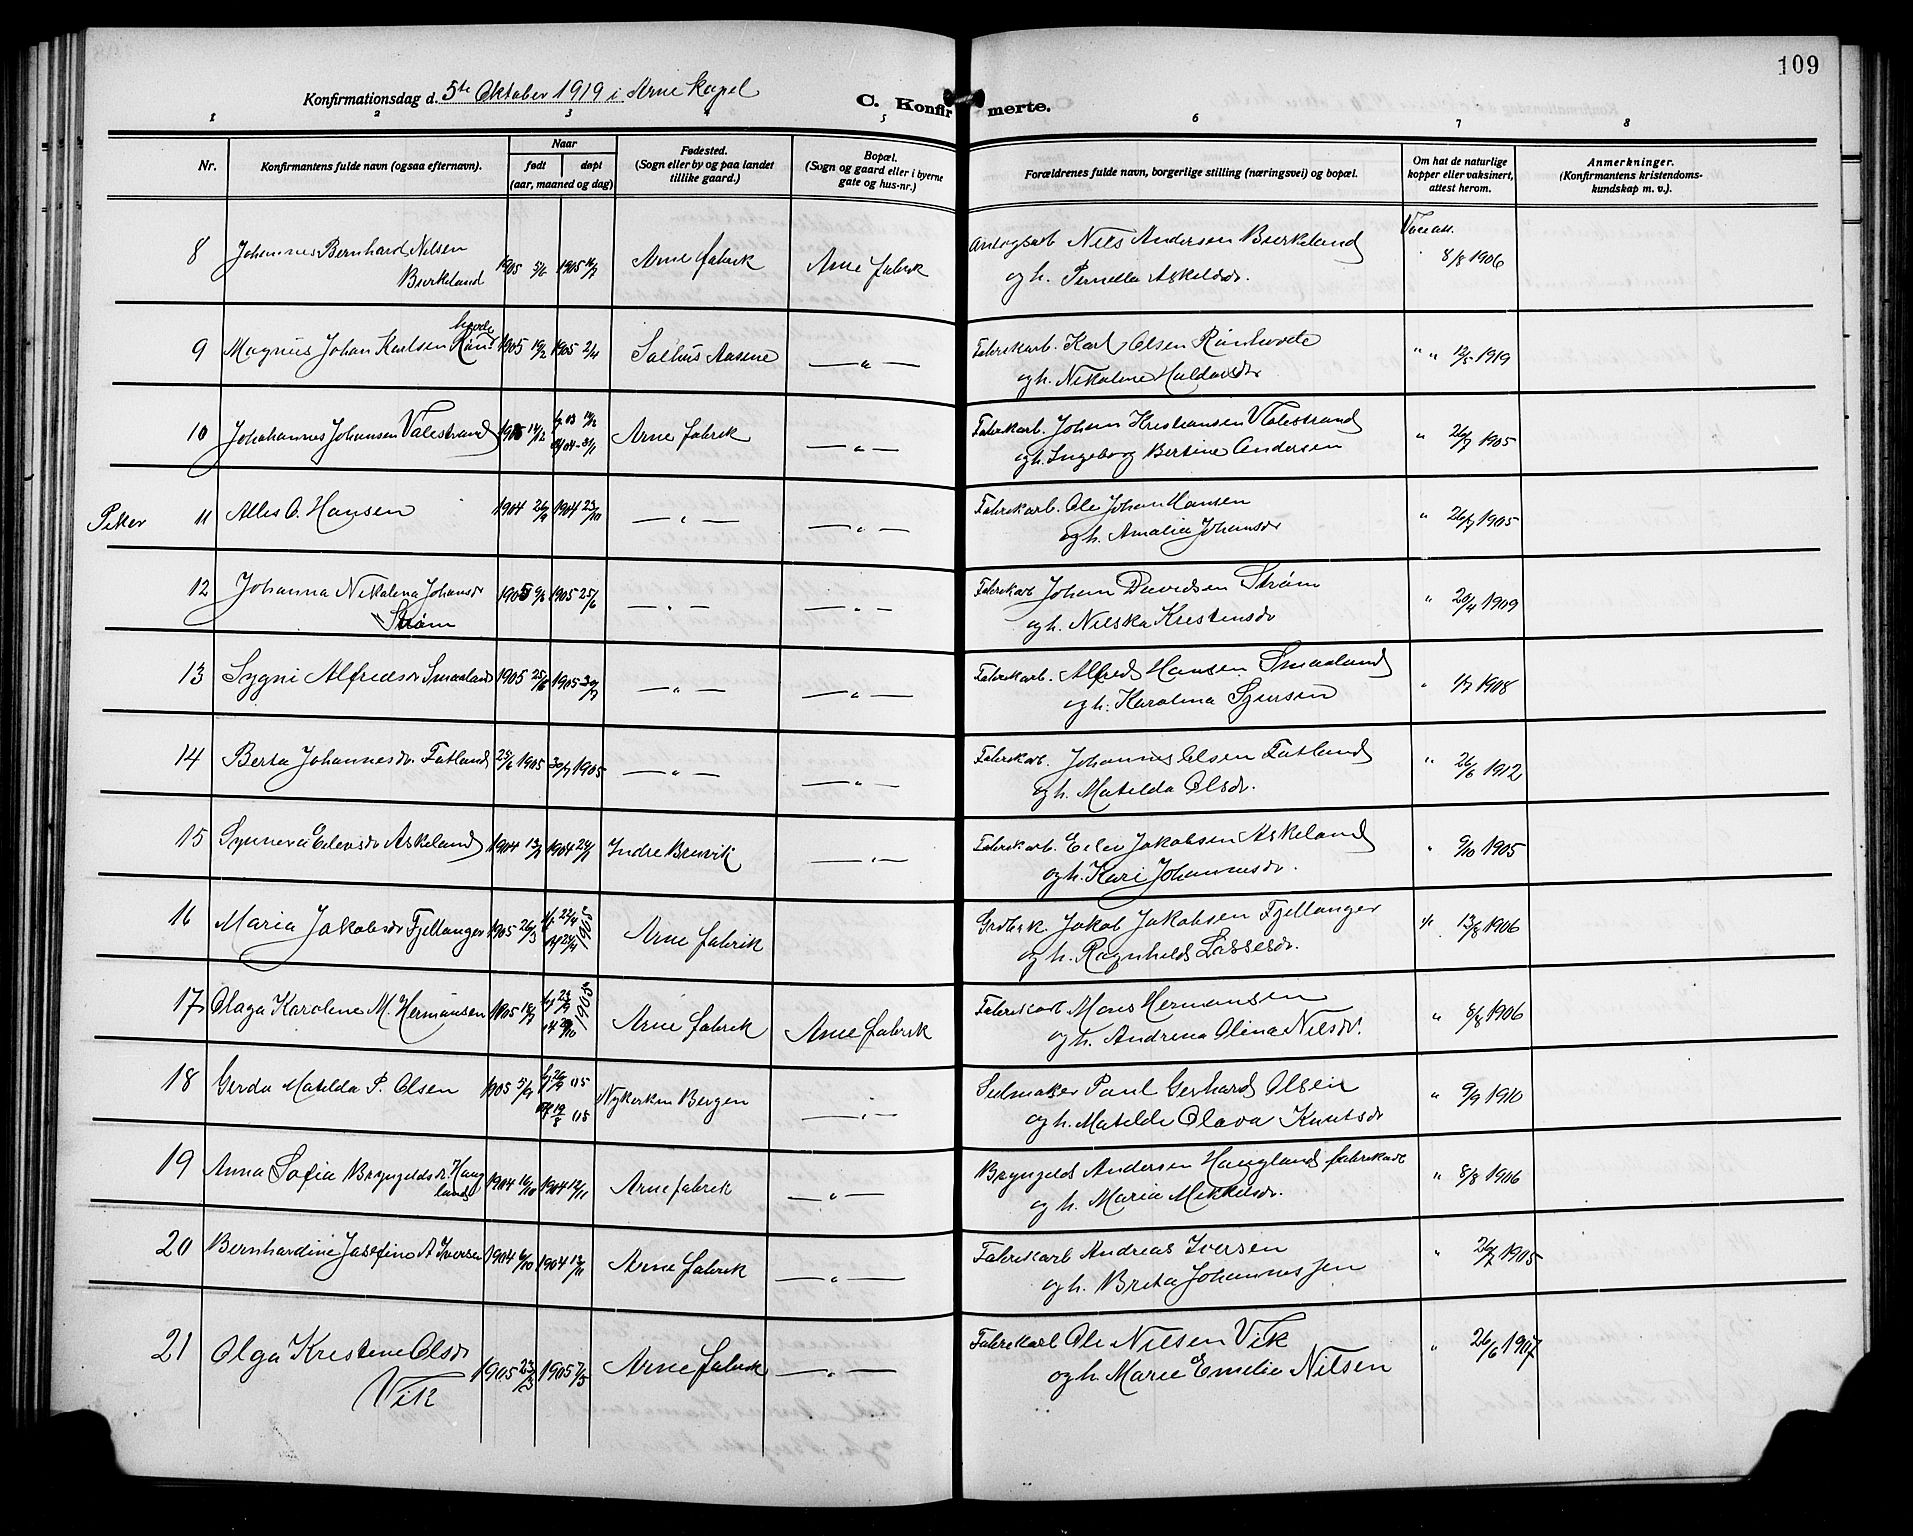 109
Konfirmationsdag d. 5te Oktober 1919 i Arne kapel
C. Konfirmerte.
1 2 3 4 5 6 7 8
Nr. Konfirmantens fulde navn (ogsaa efternavn). Naar født døpt (aar, maaned og dag) Fødested. (Sogn eller by og paa landet tillike gaard.) Bopæl. (Sogn og gaard eller i byerne gate og hus-nr.) Forældrenes fulde navn, borgerlige stilling (næringsvei) og bopæl. Om hat de naturlige kopper eller vaksinert, attest herom. Anmerkninger. (Konfirmantens kristendomskundskap m. v.).
8 Johannes Bernhard Nilsen 1905 5/6 1905 16/7 Arne fabrik Arne fabrik Nils Andersen Birkeland Vac. att.
Birkeland og h. Pernella Askeldsdr. 8/8 1906
9 Magnus Johan Karlsen Rønhovde 1905 19/2 1905 2/4 Salhus Aasene — " — Fabrikarb. Karl Olsen Rønhovde " " 12/5 1919
og h. Nikoline Haldorsdr
10 Johahannes Johansen Valestrand 14/2 Arne fabrik — " — Fabrikarb. Johan Kristiansen Valestrand " 26/7 1905
og h. Ingeborg Bertine Andersen
Piker 11 Alles O. Hansen 1904 26/9 1904 23/10 — " — — " — Fabrikarb. Ole Johan Hansen " 26/7 1905
og h. Amalia Johansdr
12 Johanna Nikolina Johansdr 1905 9/5 1905 25/6 — " — — " — Fabrikarb Johan Davidsen Strøm " 20/4 1909
Strøm og h. Nilska Kristensdr
13 Sygni Alfredsdr Smaaland 1905 25/6 1905 30/7 — " — — " — Fabrikarb. Alfred Hansen Smaaland " 1/7 1908
og h. Karolina Sjursen
14 Berta Johannesdr. Fatland 25/6 1905 30/7 1905 — " — — " — Fabrikarb. Johannes Olsen Fatland " 26/6 1912
og h. Matilda Olsdr.
15 Synneva Eilevsdr Askeland 1904 13/7 1904 Indre Bruvik — " — Fabrikarb. Eilev Jakobsen Askeland " 9/10 1905
og h. Kari Johannesdr.
16 Maria Jakobsdr Fjellanger 1905 26/3 1905 Arne fabrik Grdbrk. Jakob Jakobsen Fjellanger " 13/8 1906
og h. Ragnhild Lassesdr.
17 Olaga Karolene M. Hermansen 1905 Arne fabrik Arne fabrik Fabrikarb Mons Hermansen " 8/8 1906
og h. Andrena Olina Nilsdr.
18 Gerda Matilda P. Olsen 1905 5/7 Nykirken Bergen — " — Seilmaker Paul Gerhard Olsen " 9/9 1910
og h. Matilde Olava Knutsdr
19 Anna Sofia Bryngeldsdr. Haugland 1904 16/10 1904 12/11 Arne fabrik — " — Bryngeld Andersen Haugland fabrikarb " 8/8 1906
og h. Maria Mikkelsdr.
20 Bernhardine Josefine A Iversen 1904 6/10 1904 13/11 Arne fabrik — " — Fabrikarb Andreas Iversen " 26/7 1905
og h. Brita Johannessen
21 Olga Kristine Olsdr 1905 23/3 1905 7/5 Arne fabrik — " — Fabrikarb Ole Nilsen Vik " 26/6 1907
Vik og h. Marie Emelie Nilsen